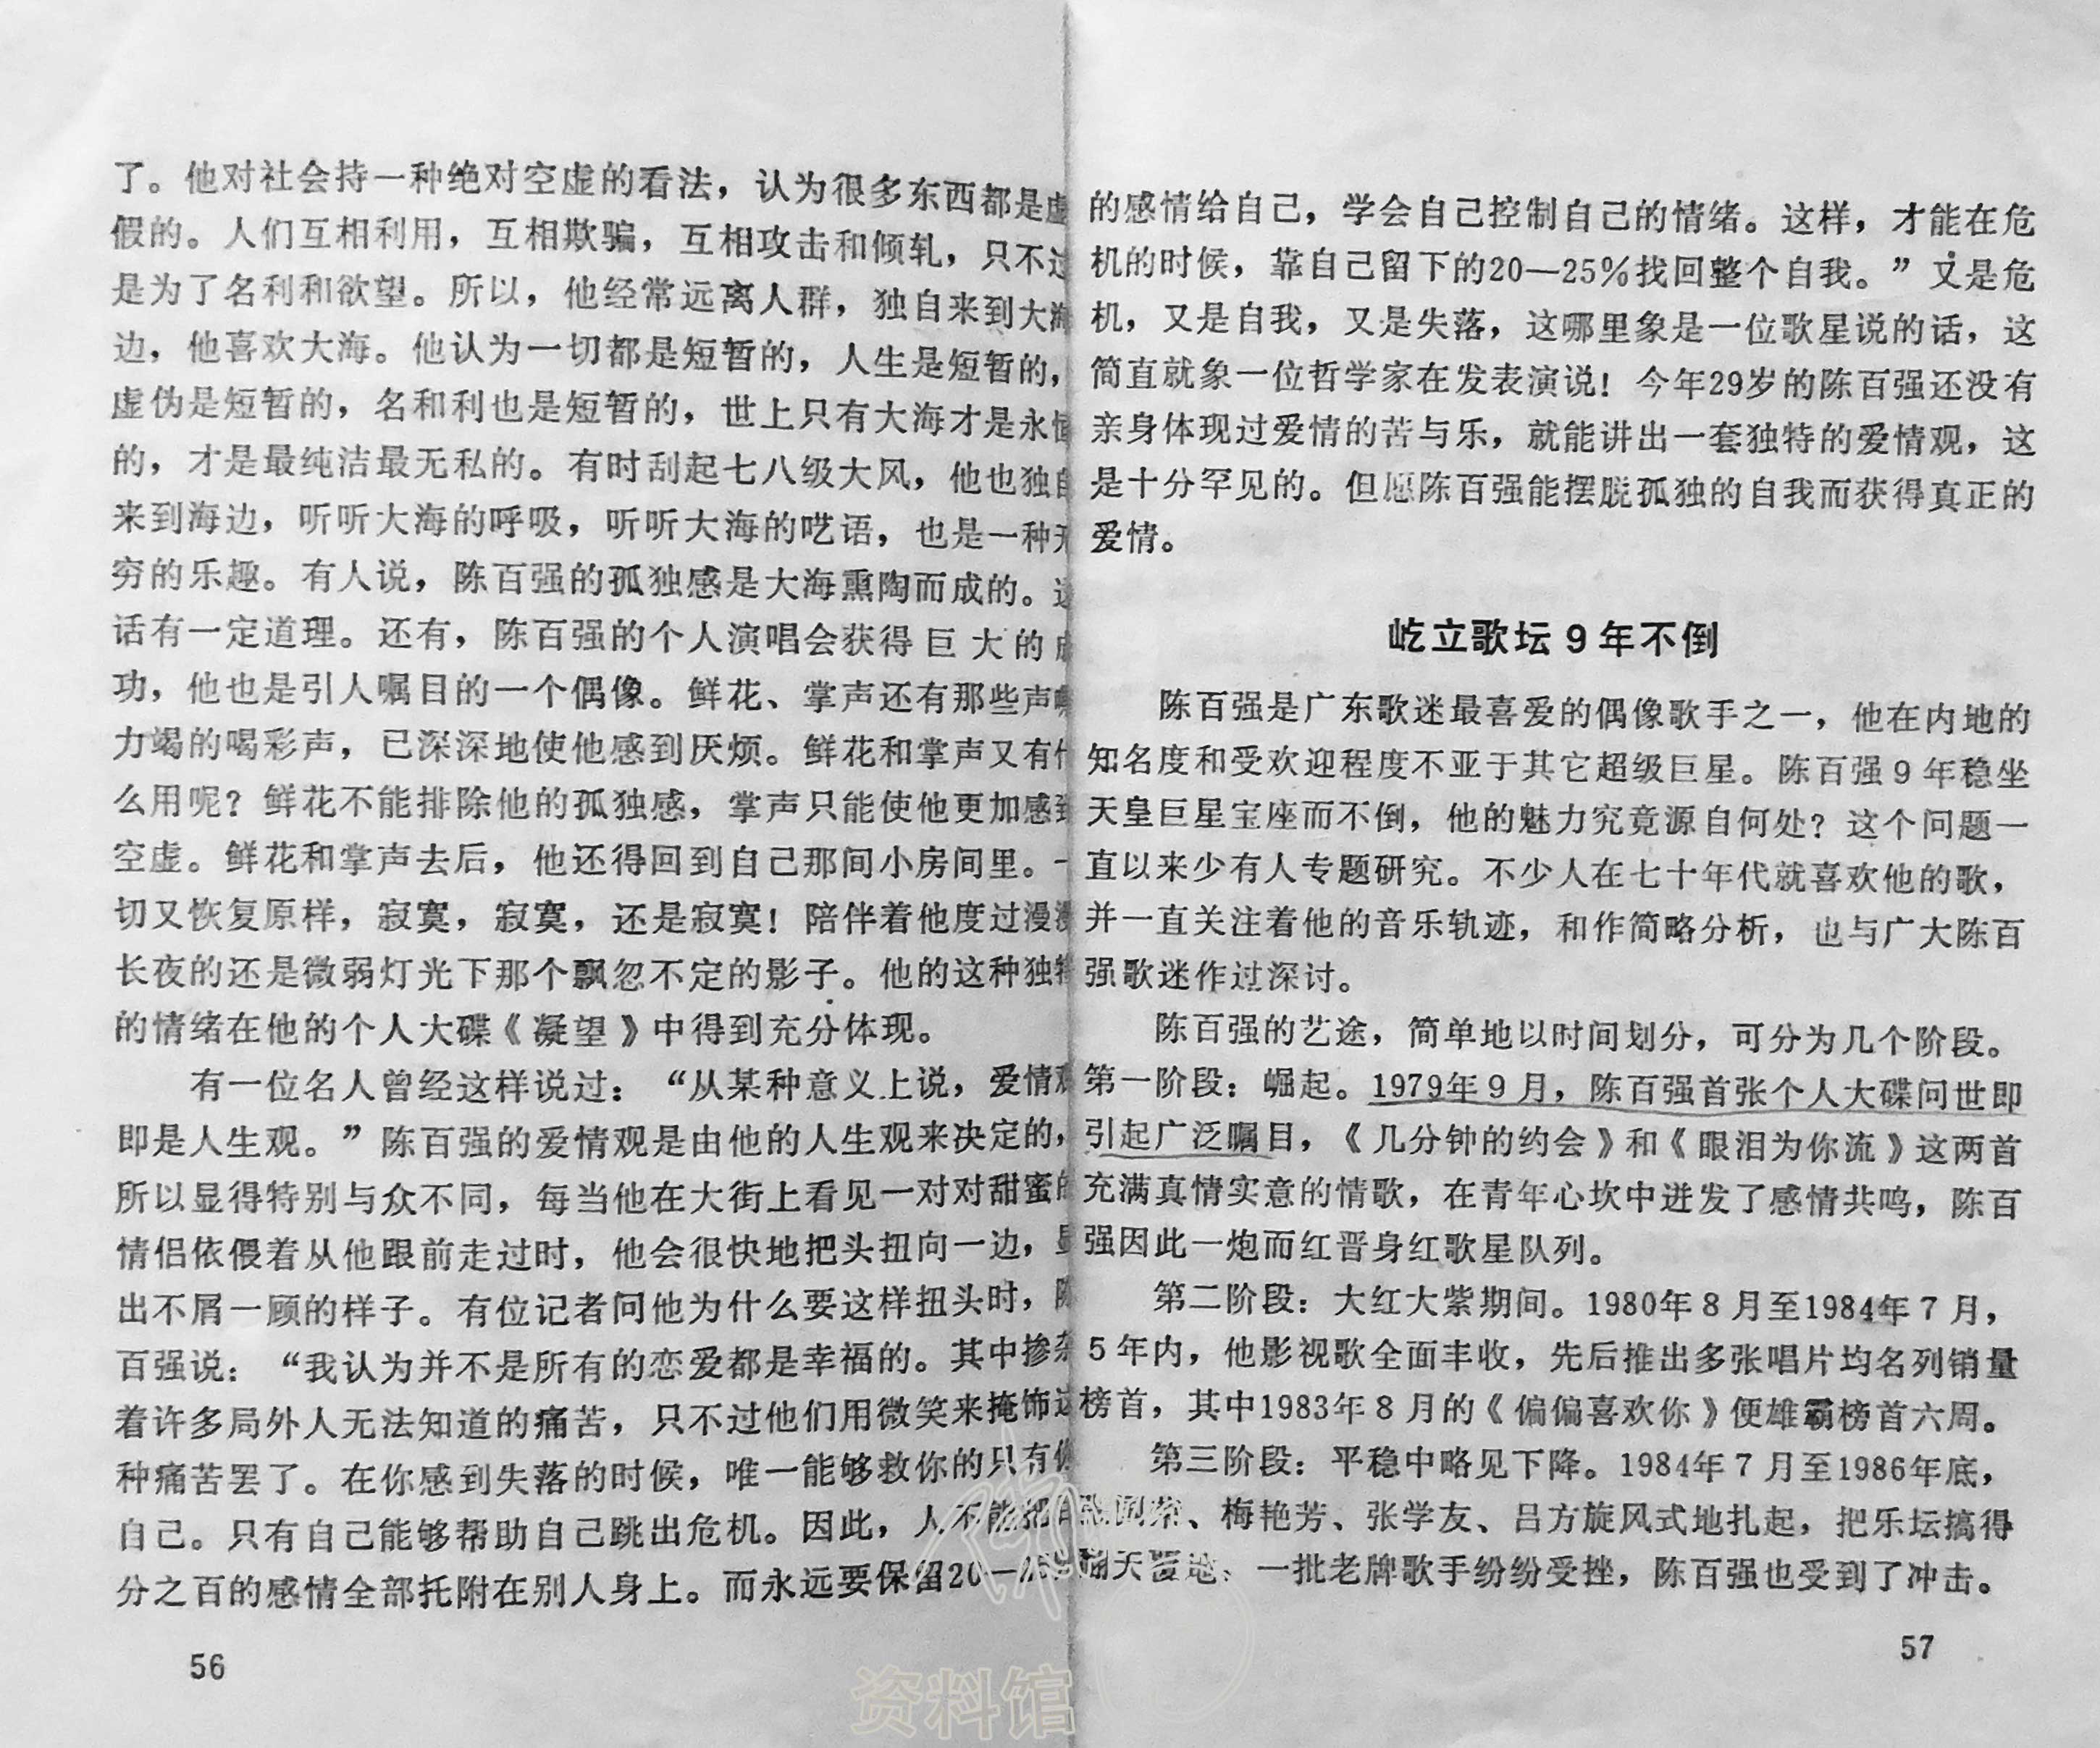 了。他对社会持一种绝对空虚的看法，认为很多东西都是虚
假的。人们互相利用，互相欺骗，互相攻击和倾轧，只不过
是为了名利和欲望。所以，他经常远离人群，独自来到大海
边，他喜欢大海。他认为一切都是短暂的，人生是短暂的，
虚伪是短暂的，名和利也是短暂的，世上只有大海才是永恒
的，才是最纯洁最无私的。有时刮起七八级大风，他也独自
来到海边，听听大海的呼吸，听听大海的呓语，也是一种无
穷的乐趣。有人说，陈百强的孤独感是大海熏陶而成的。这
话有一定道理。还有，陈百强的个人演唱会获得巨大的成
功，他也是引人瞩目的一个偶像。鲜花、掌声还有那些声嘶
力竭的喝彩声，已深深地使他感到厌烦。鲜花和掌声又有什
么用呢？鲜花不能排除他的孤独感，掌声只能使他更加感到
空虚。鲜花和掌声去后，他还得回到自己那间小房间里。一
切又恢复原样，寂寞，寂寞，还是寂寞！陪伴着他度过漫漫
长夜的还是微弱灯光下那个飘忽不定的影子。他的这种独特
的情绪在他的个人大碟《凝望》中得到充分体现。
有一位名人曾经这样说过：“从某种意义上说，爱情观
即是人生观。”陈百强的爱情观是由他的人生观来决定的，
所以显得特别与众不同，每当他在大街上看见一对对甜蜜的
情侣依偎着从他跟前走过时，他会很快地把头扭向一边，显
出不屑一顾的样子。有位记者问他为什么要这样扭头时，陈
百强说：“我认为并不是所有的恋爱都是幸福的。其中掺杂
着许多局外人无法知道的痛苦，只不过他们用微笑来掩饰这
种痛苦罢了。在你感到失落的时候，唯一能够救你的只有你
自己。只有自己能够帮助自己跳出危机。因此，人不能把
分之百的感情全部托附在别人身上。而永远要保留20—25%
56
的感情给自己，学会自己控制自己的情绪。这样，才能在危
机的时候，靠自己留下的20—25%找回整个自我。”又是危
机，又是自我，又是失落，这哪里象是一位歌星说的话，这
简直就象一位哲学家在发表演说！今年29岁的陈百强还没有
亲身体现过爱情的苦与乐，就能讲出一套独特的爱情观，这
是十分罕见的。但愿陈百强能摆脱孤独的自我而获得真正的
爱情。
屹立歌坛9年不倒
陈百强是广东歌迷最喜爱的偶像歌手之一，他在内地的
知名度和受欢迎程度不亚于其它超级巨星。陈百强9年稳坐
天皇巨星宝座而不倒，他的魅力究竟源自何处？这个问题一
直以来少有人专题研究。不少人在七十年代就喜欢他的歌，
并一直关注着他的音乐轨迹，和作简略分析，也与广大陈百
强歌迷作过深讨。
陈百强的艺途，简单地以时间划分，可分为几个阶段。
第一阶段：崛起。1979年9月，陈百强首张个人大碟问世即
引起广泛瞩目，《几分钟的约会》和《眼泪为你流》这两首
充满真情实意的情歌，在青年心坎中迸发了感情共鸣，陈百
强因此一炮而红晋身红歌星队列。
第二阶段：大红大紫期间。1980年8月至1984年7月，
5年内，他影视歌全面丰收，先后推出多张唱片均名列销量
榜首，其中1983年8月的《偏偏喜欢你》便雄霸榜首六周。
第三阶段：平稳中略见下降。1984年7月至1986年底，
张国荣、梅艳芳、张学友、吕方旋风式地扎起，把乐坛搞得
翻天覆地，一批老牌歌手纷纷受挫，陈百强也受到了冲击。
57
资料馆